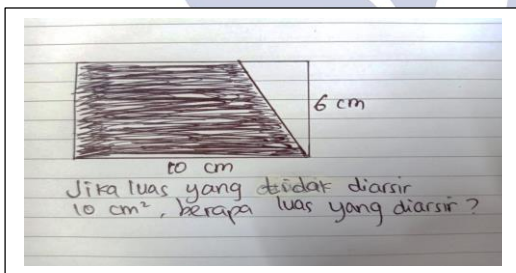 6 cm
10 cm
Jika luas yang tidak diarsir
10 cm², berapa luas yang diarsir?